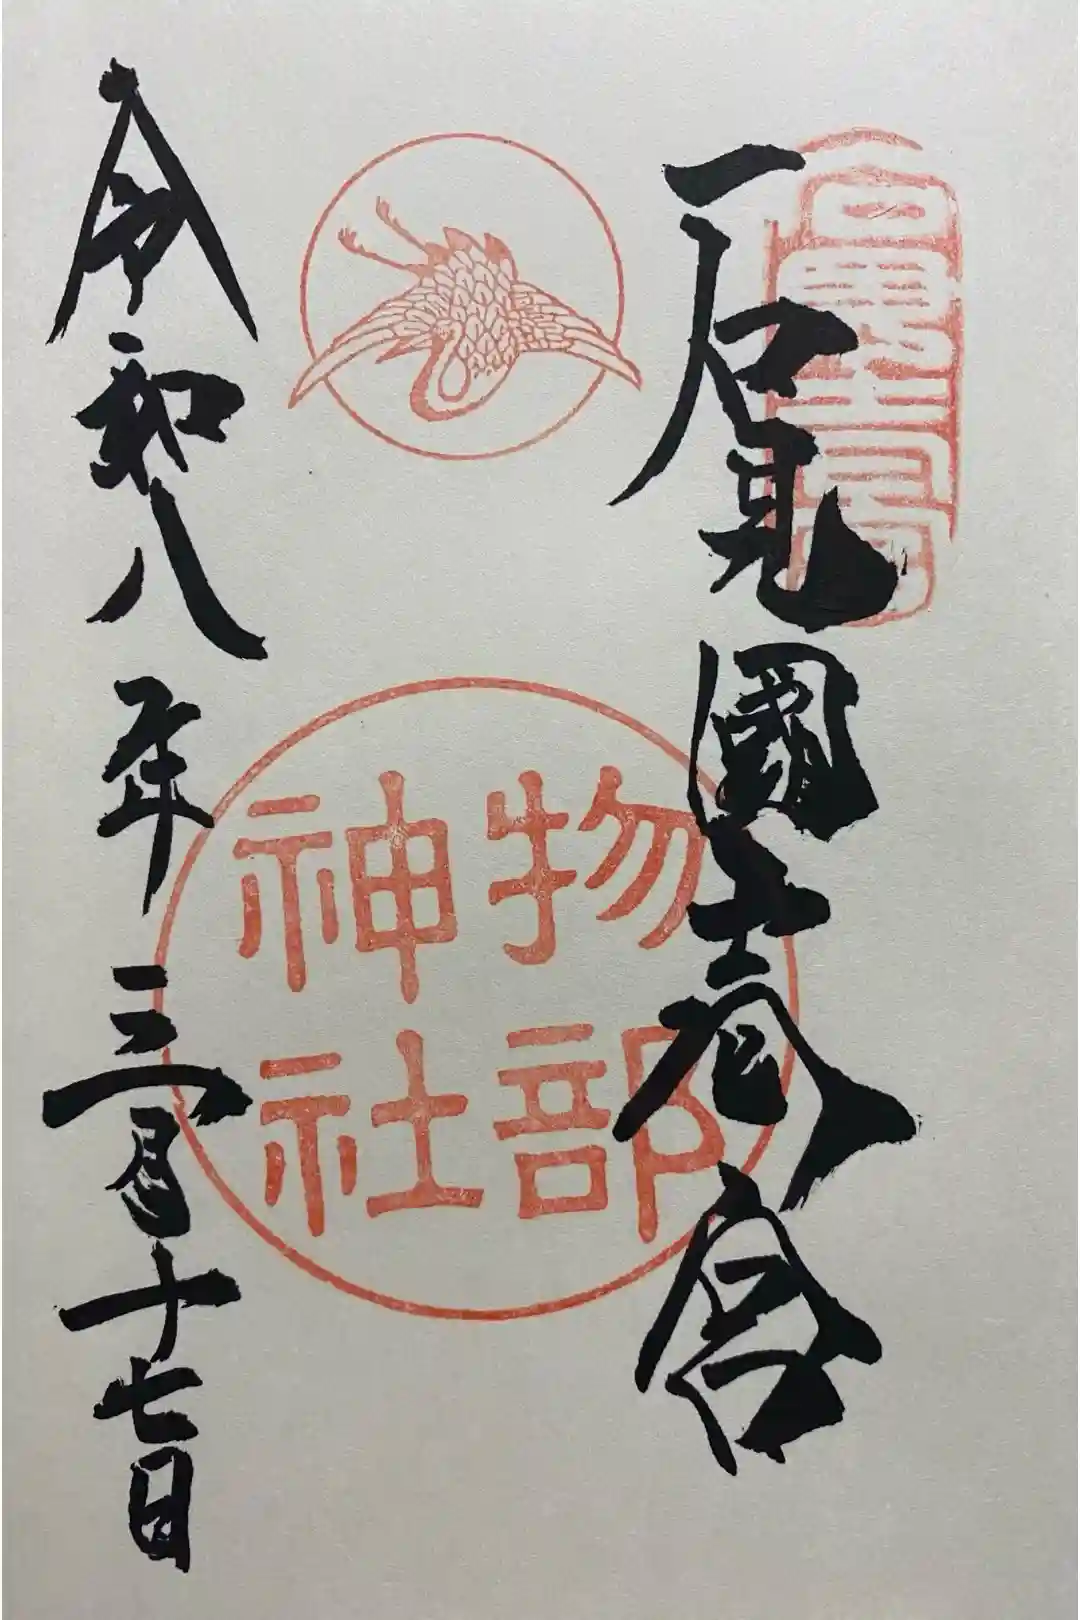 石見國壹宮
物部
神社
令和八年三月十七日